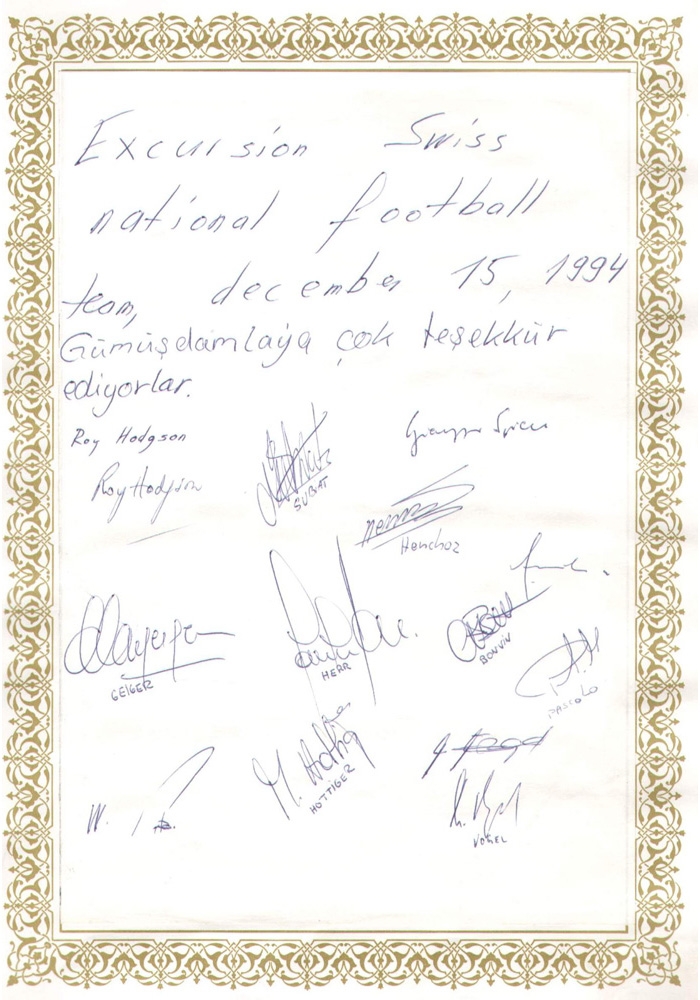 Excursion Swiss
national football
team, december 15, 1994
Gümüşdamla'ya çok teşekkür
ediyorlar.
Roy Hodgson
Roy Hodgson
SUBAT
Henchoz
GEIGER
HERR
BONVIN
PASCOLO
M. Hottiger
HOTTIGER
W.
VOGEL